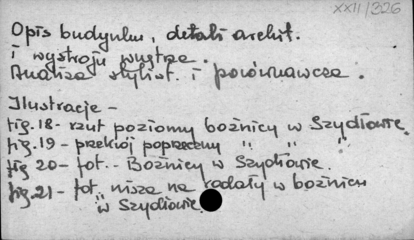 XXII/326
Opis budynku, detali archit.
i wystroju wnętrza.
Analiza stylist. i porównawcza.
Ilustracje -
fig. 18 - rzut poziomy bożnicy w Szydłowie
fig. 19 - przekrój poprzeczny " " "
fig 20 - fot. - Bożnicy w Szydłowie.
fig. 21 - fot. nisza na rodały w bożnicy
w Szydłowie.